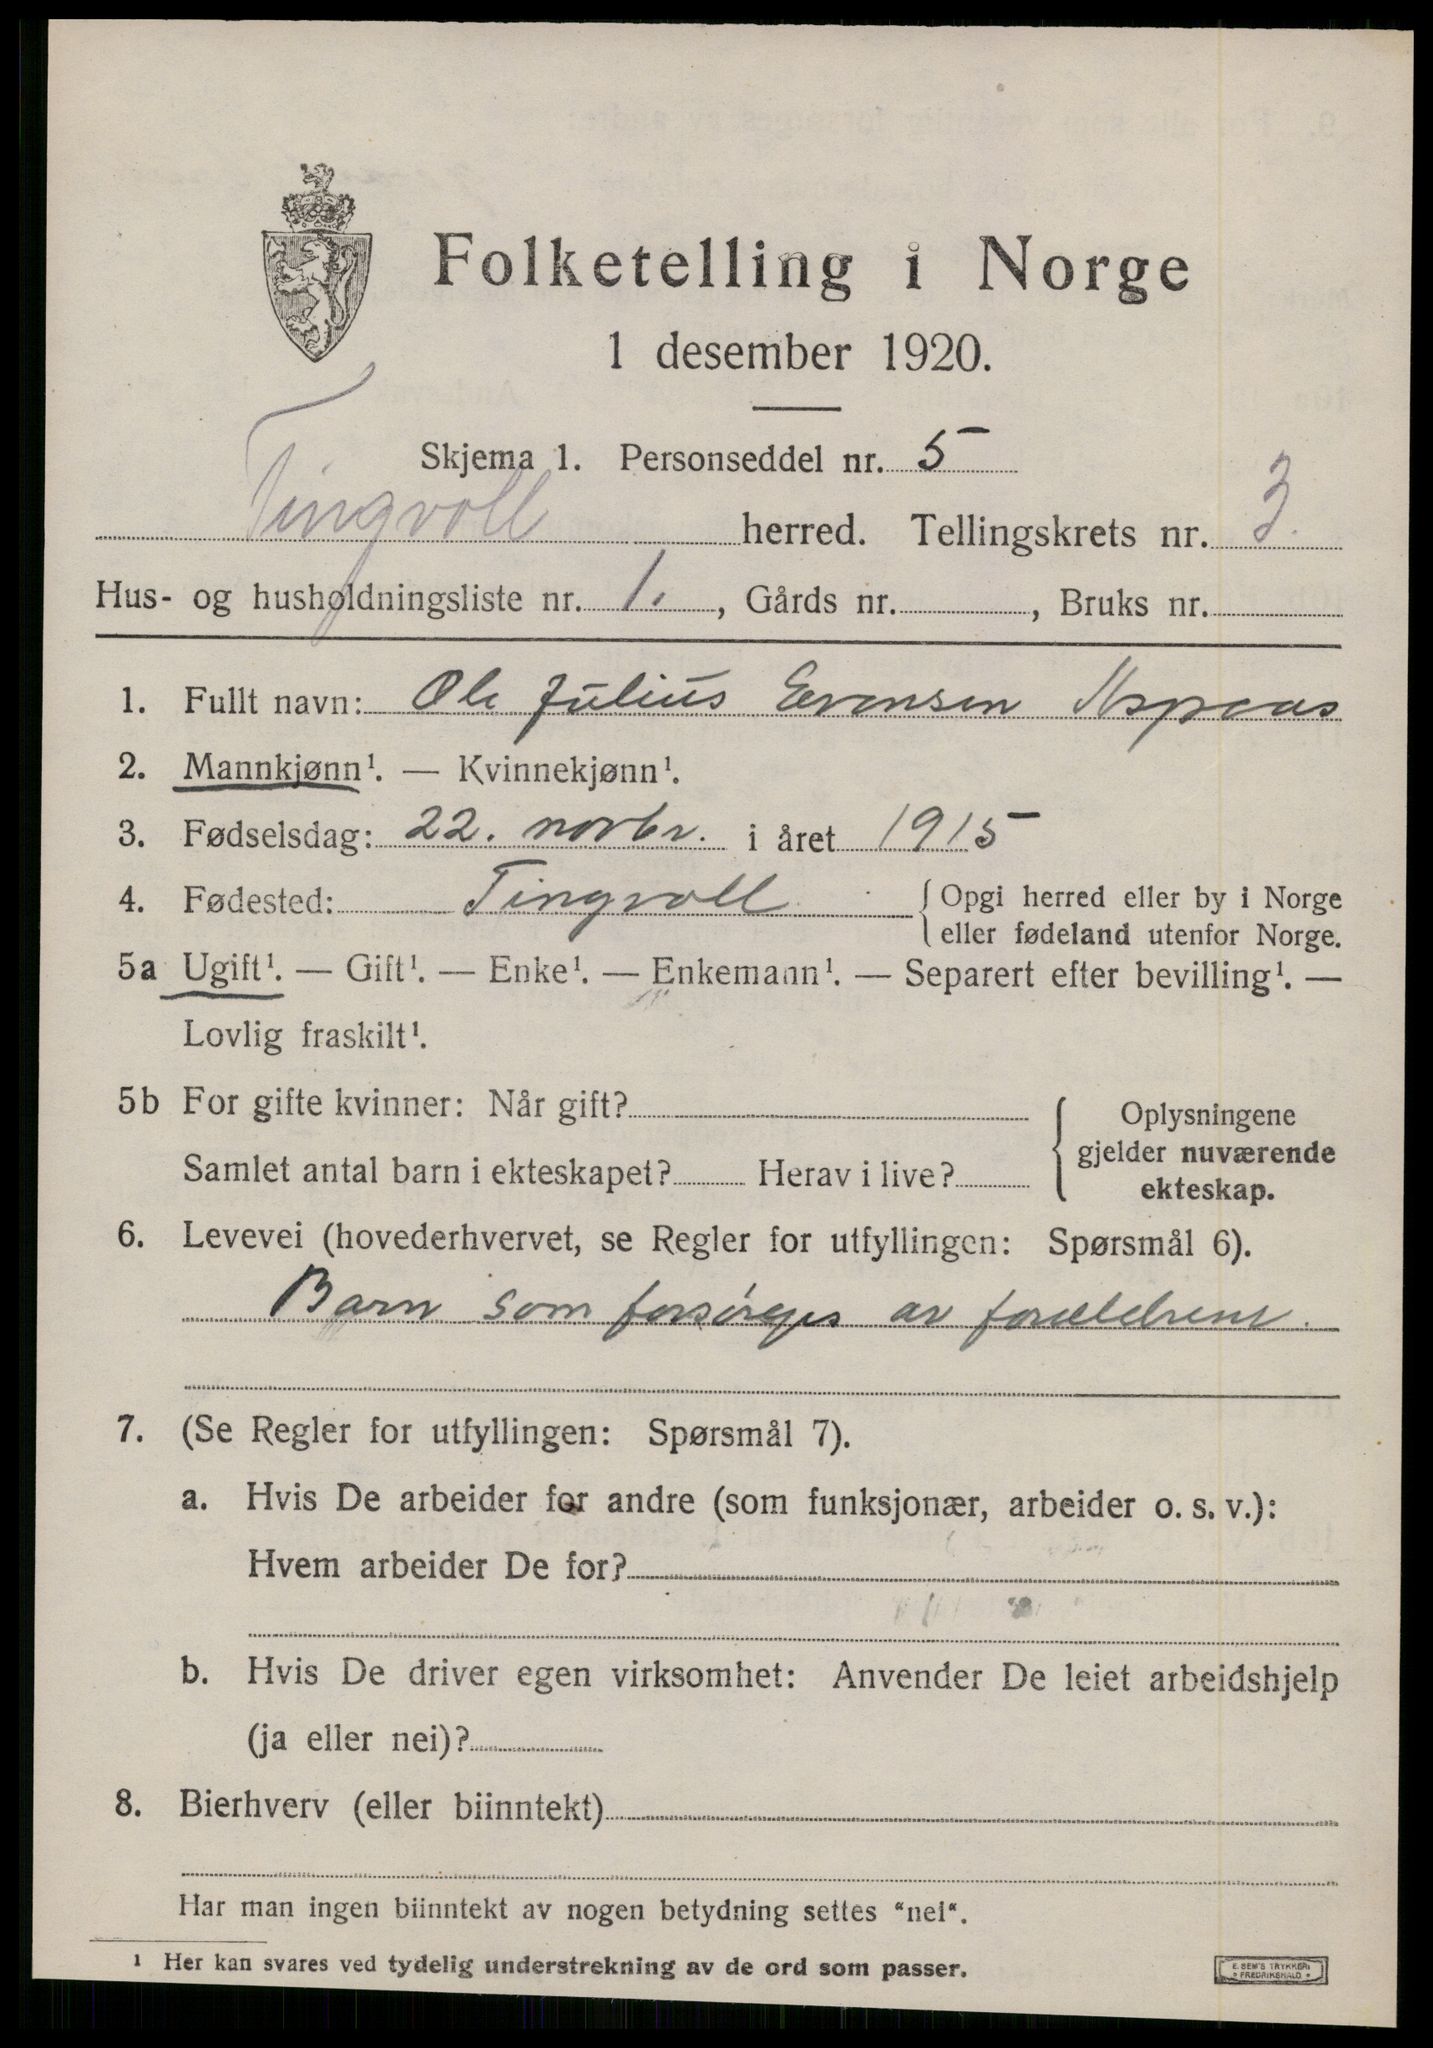 Folketelling i Norge
1 desember 1920.
Skjema 1. Personseddel nr. 5
Tingvoll herred. Tellingskrets nr. 3.
Hus- og husholdningsliste nr. 1. , Gårds nr. , Bruks nr.
1. Fullt navn: Ole Julius Evensen Aspaas
2. Mannkjønn¹. — Kvinnekjønn¹.
3. Fødselsdag: 22. novbr. i året 1915
4. Fødested: Tingvoll { Opgi herred eller by i Norge
eller fødeland utenfor Norge.
5a Ugift¹. — Gift¹. — Enke¹. — Enkemann¹. — Separert efter bevilling¹. —
Lovlig fraskilt¹.
5b For gifte kvinner: Når gift?
Samlet antal barn i ekteskapet? Herav i live?
Oplysningene
gjelder nuværende
ekteskap.
6. Levevei (hovederhvervet, se Regler for utfyllingen: Spørsmål 6).
Barn som forsørges av forældrene.
7. (Se Regler for utfyllingen: Spørsmål 7).
a. Hvis De arbeider for andre (som funksjonær, arbeider o. s. v.):
Hvem arbeider De for?
b. Hvis De driver egen virksomhet: Anvender De leiet arbeidshjelp
(ja eller nei)?
8. Bierhverv (eller biinntekt)
Har man ingen biinntekt av nogen betydning settes "nei".
¹ Her kan svares ved tydelig understrekning av de ord som passer.
E. SEM'S TRYKKERI
FREDRIKSHALD